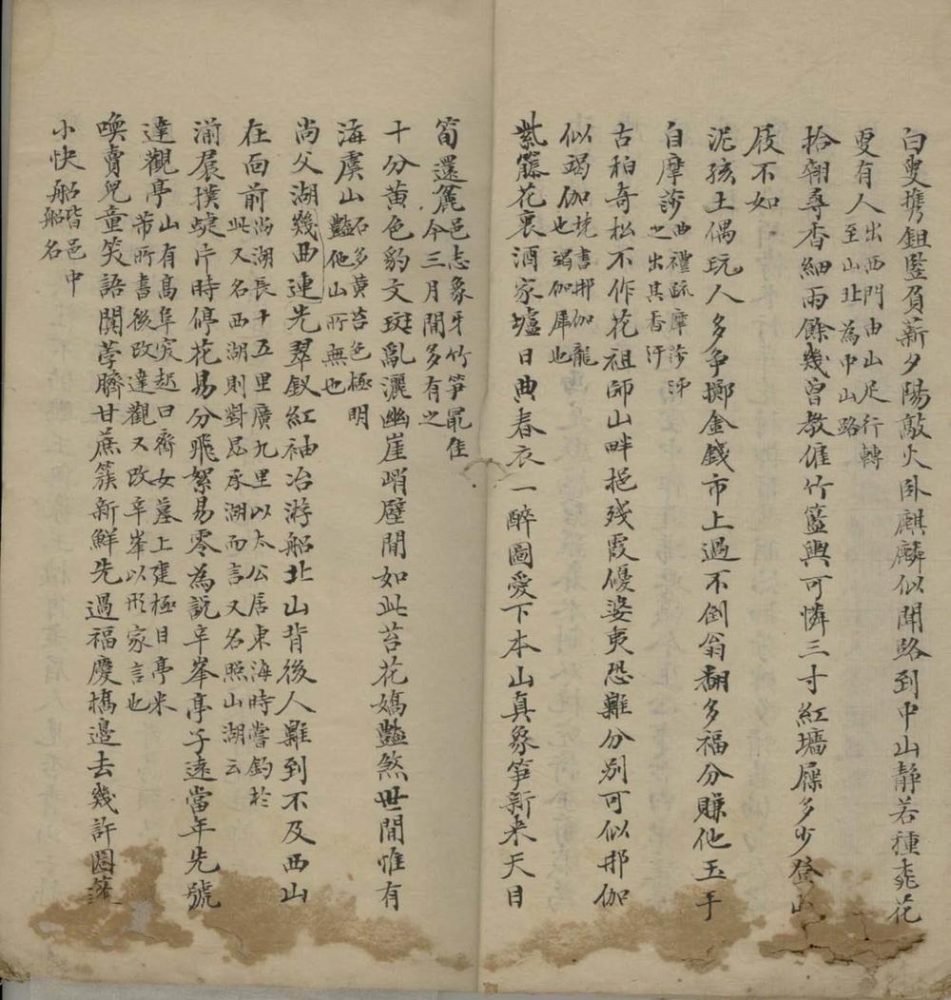 白叟携鉏豎負薪夕陽敲火卧麒麟似聞路到中山靜若種桃花
更有人出西門由山尾行轉至山北為中山路
拾翹尋香細雨餘幾曾教僱竹籃輿可憐三寸紅墻屧多少登山
屐不如
泥孩土偶玩人多爭擲金錢市上過不倒翁翻多福分賺他玉手
自摩莎曲禮疏摩莎汗之出其香汙
古柏奇松不作花祖師山畔挹殘霞優婆夷恐難分别可似那伽
似朅伽梵書那伽龍也朅伽犀也
紫籐花裏酒家壚日典春衣一醉圖愛下本山真象笋新来天目
筍還麄邑志象牙竹笋最佳今三月間多有之
十分黄色豹文斑亂灑幽崖峭壁間如此苔花嬌豔煞世間惟有
海虞山石多黄苔色極明豔他山所無也
尚父湖幾曲連先翠釵紅袖冶游船北山背後人難到不及西山
在面前尚湖長十五里廣九里以太公居東海時嘗釣於此又名西湖則對昆承湖而言又名照山湖云
湔裙撲蜨片時停花易分飛絮易零為説辛峯亭子遠當年先號
達觀亭山有高阜突起曰齊女墓上建極目亭米芾所書後改達觀又改辛峯以形家言也
喚賣兒童笑語闐荸臍甘蔗簇新鮮先過福慶橋邊去幾許
小快船船皆邑中船名